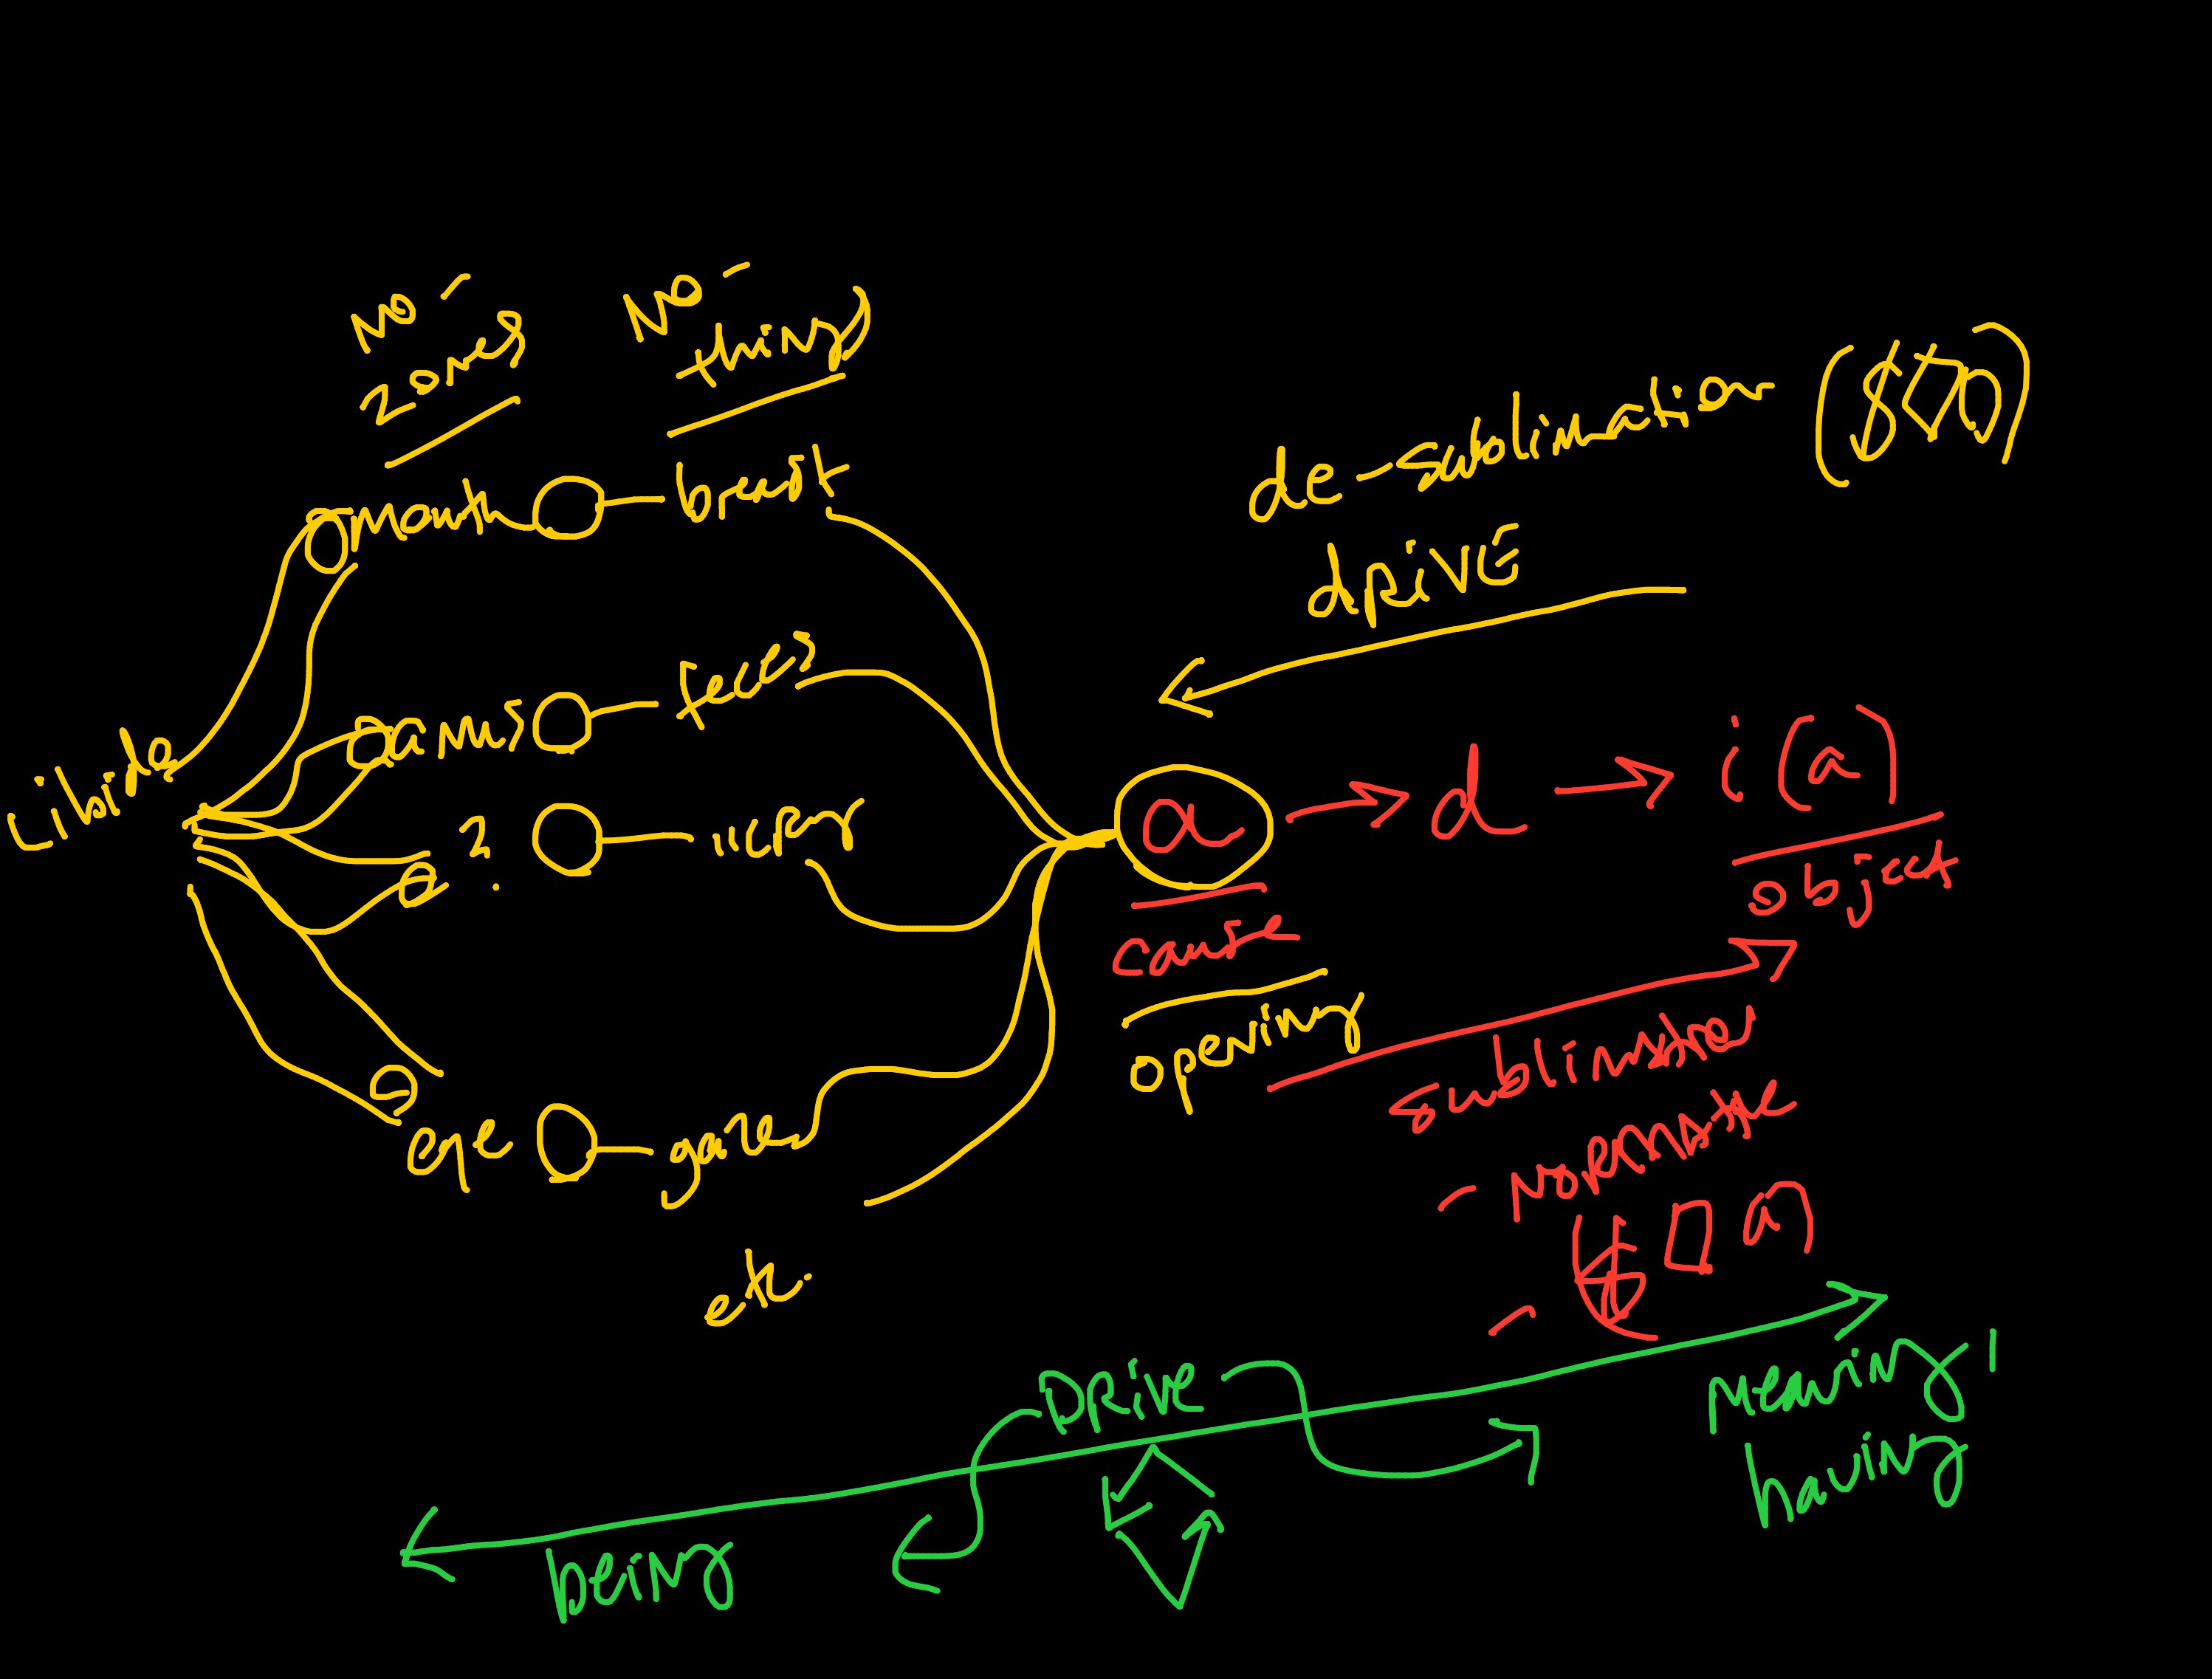 No-
zones
No-
things
mouth
breast
de-sublimation ($◊D)
drive
Libido
anus
feces
?
a
d
i(a)
object
cause
opening
eye
gaze
etc.
sublimate
- Normate
Drive
being
Meaning,
having